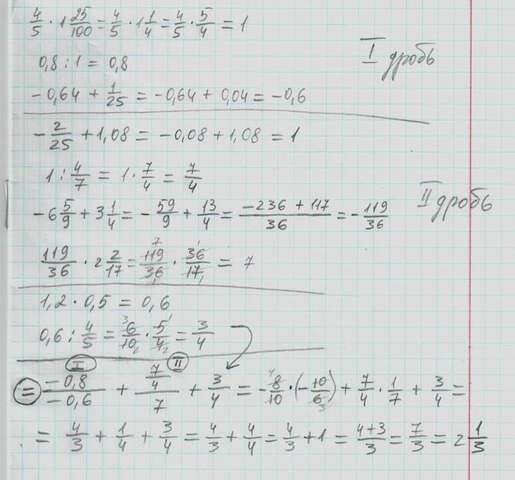 4/5 · 1 25/100 = 4/5 · 1 1/4 = 4/5 · 5/4 = 1
0,8 : 1 = 0,8
I дробь
-0,64 + 1/25 = -0,64 + 0,04 = -0,6
-2/25 + 1,08 = -0,08 + 1,08 = 1
1 : 4/7 = 1 · 7/4 = 7/4
II дробь
-6 5/9 + 3 1/4 = -59/9 + 13/4 = (-236 + 117)/36 = -119/36
119/36 · 2 2/17 = 119/36 · 36/17 = 7
1,2 · 0,5 = 0,6
0,6 : 4/5 = 6/10 · 5/4 = 3/4
I II
= -0,8/-0,6 + (7/4)/7 + 3/4 = -8/10 · (-10/6) + 7/4 · 1/7 + 3/4 =
= 4/3 + 1/4 + 3/4 = 4/3 + 4/4 = 4/3 + 1 = (4+3)/3 = 7/3 = 2 1/3